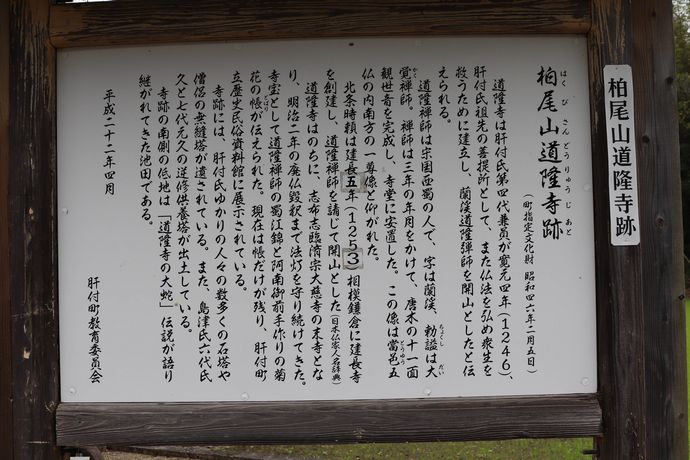 柏尾山道隆寺跡
柏尾山道隆寺跡
はくびさんどうりゅうじあと
(町指定文化財 昭和四六年二月五日)
道隆寺は肝付氏第四代兼員が寛元四年(1246)、
肝付氏祖先の菩提所として、また仏法を弘め衆生を
救うために建立し、蘭渓道隆弾師を開山としたと伝
えられる。
道隆禅師は宋国西蜀の人で、字は蘭渓、勅謚は大
ちょくし だい
覚禅師。禅師は三年の年月をかけて、唐木の十一面
かく
観世音を完成し、寺堂に安置した。この像は當邑五
とうゆう
仏の内南方の一尊像と仰がれた。
北条時頼は建長五年(1253)相模鎌倉に建長寺
を創建し、道隆禅師を請じて開山とした(日本仏家人名辞典)
道隆寺はのちに、志布志臨済宗大慈寺の末寺とな
り、明治二年の廃仏毀釈まで法灯を守り続けてきた。
寺宝として道隆禅師の蜀江錦と阿南御前手作りの菊
花の帳が伝えられた。現在は帳だけが残り、肝付町
立歴史民俗資料館に展示されている。
寺跡には、肝付氏ゆかりの人々の数多くの石塔や
僧侶の無縫塔が遺されている。また、島津氏六代氏
久と七代元久の逆修供養塔が出土している。
寺跡の南側の低地は「道隆寺の大蛇」伝説が語り
継がれてきた池田である。
平成二十二年四月
肝付町教育委員会